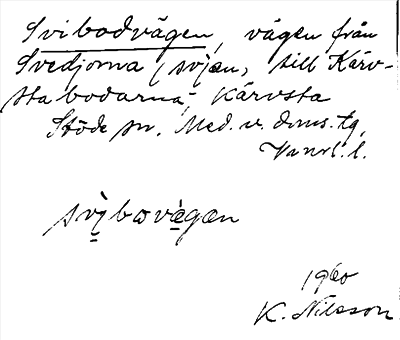 Svibodvägen, vägen från
Svedjorna (svjæn, till Kärv-
stabodarna, Kärvsta
Stöde sn, Med. v. doms. tg,
Vänrl. l.
svìbovægæn
1960
K. Nilsson